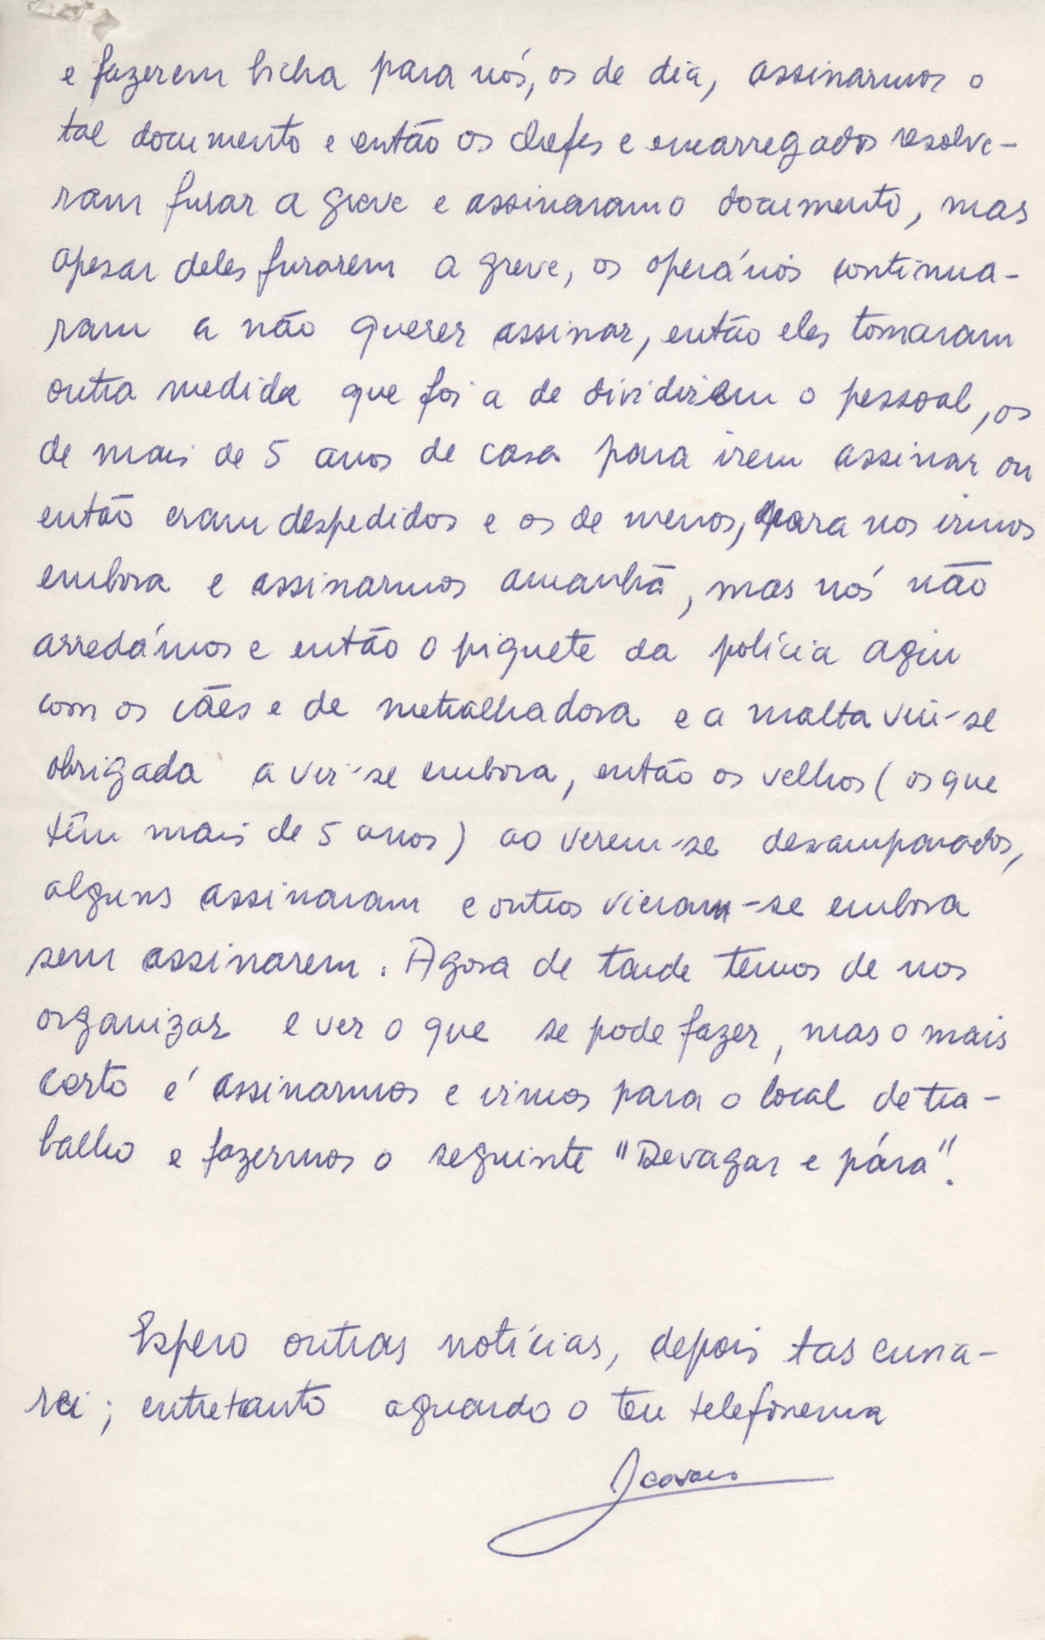 e fazerem bicha para nós, os de dia, assinarmos o
tal documento e então os chefes e encarregados resolve-
ram furar a greve e assinaram o documento, mas
apesar deles furarem a greve, os operários continua-
ram a não querer assinar, então eles tomaram
outra medida que foi a de dividirem o pessoal, os
de mais de 5 anos de casa para irem assinar ou
então eram despedidos e os de menos, para nos irmos
embora e assinarmos amanhã, mas nós não
arredámos e então o piquete da polícia agiu
com os cães e de metralhadora e a malta viu-se
obrigada a vir-se embora, então os velhos (os que
têm mais de 5 anos) ao verem-se desamparados,
alguns assinaram e outros vieram-se embora
sem assinarem. Agora de tarde temos de nos
organizar e ver o que se pode fazer, mas o mais
certo é assinarmos e irmos para o local de tra-
balho e fazermos o seguinte "Devagar e pára".
Espero outras notícias, depois tas
rei; entretanto aguardo o teu telefonema